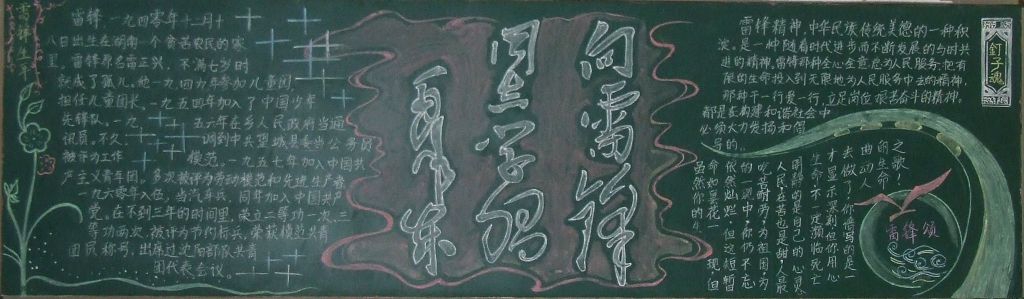 雷锋生平
雷锋，一九四零年十二月十
八日出生在湖南一个贫苦农民的家
里。雷锋原名雷正兴，不满七岁时
就成了孤儿。他一九四九年参加儿童团，
担任儿童团长。一九五四年加入了中国少年
先锋队。一九五六年在乡人民政府当通
讯员。不久，调到中共望城县委当公务员，
被评为工作模范。一九五七年加入中国共
产主义青年团。多次被评为劳动模范和先进生产者。
一九六零年入伍，当汽车兵，同年加入中国共产
党。在不到三年的时间里，荣立二等功一次、三
等功两次，被评为节约标兵，荣获模范共青
团员称号，出席过沈阳部队共青
团代表会议。
向雷锋
同志学习
毛泽东
雷锋精神，中华民族传统美德的一种积
淀，是一种随着时代进步而不断发展的与时共
进的精神。雷锋那种全心全意为人民服务，把有
限的生命投入到无限地为人民服务中去的精神，
那种干一行爱一行，立足岗位艰苦奋斗的精神。
都是在构建和谐社会中
必须大力发扬和倡
导的。
钉子魂
雷锋颂
之歌，
的生命
曲动人
去做了你谱写的是一
才显示深刻但你用心
生命不一定濒临死亡
周围的是自己的心灵
人民吃苦也是甜人最
吃苦高峭为为祖国为
的一现中你仍不忘
依然灿烂但这短暂
命如昙花一现但
虽然你的生